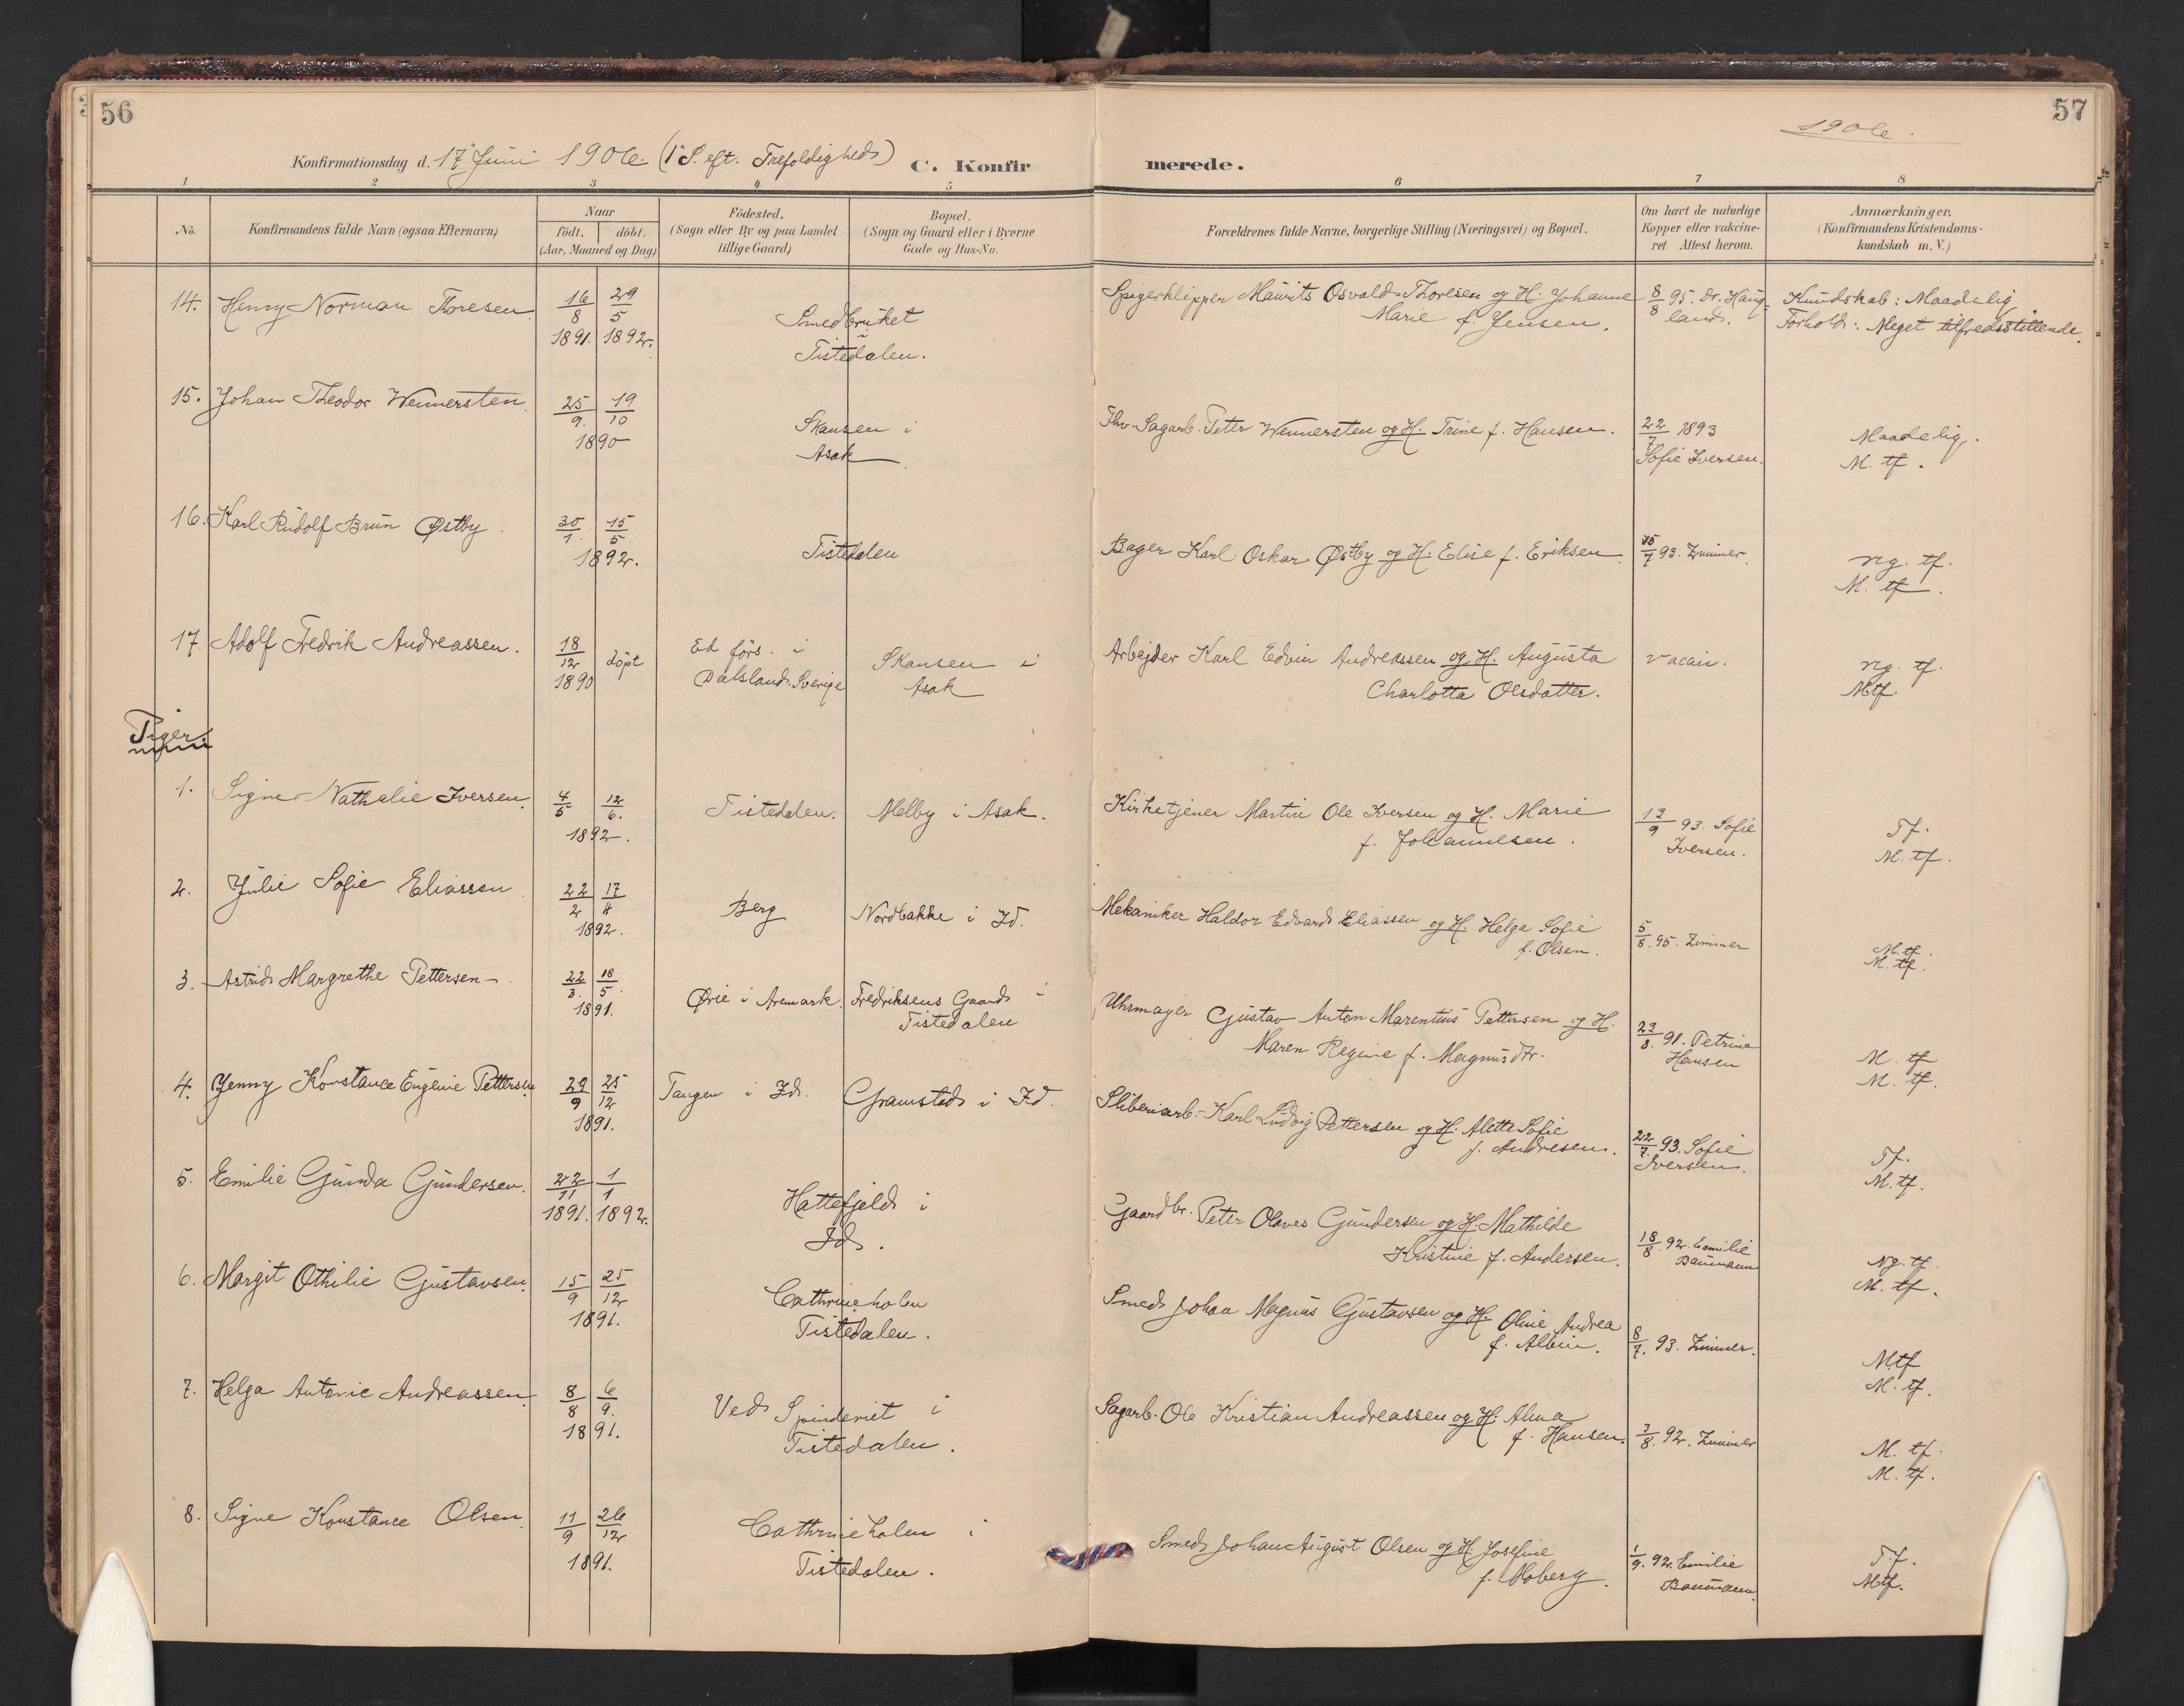 56
57
1906.
Konfirmationsdag d. 17 Juni 1906. (1 S. eft. Trefoldigheds) C. Konfir
merede.
1 2 3 4 5 6 7 8
No. Konfirmandens fulde Navn (ogsaa Efternavn)
Naar
födt. döbt.
(Aar, Maaned og Dag)
Födested.
(Sogn eller By og paa Landet
tillige Gaard)
Bopæl.
(Sogn og Gaard eller i Byerne
Gade og Hus-No.
Forældrenes fulde Navne, borgerlige Stilling (Næringsvei) og Bopæl.
Om havt de naturlige
Kopper eller vakcine-
ret. Attest herom.
Anmærkninger.
(Konfirmandens Kristendoms-
kundskab m. V.)
14. Henry Norman Thoresen 16/8 1891. 29/5 1892.
Smedbruket i
Tistedalen.
Spigerklipper Maurits Osvald Thoresen og H. Johanne
Marie f. Jensen.
8/8 95. Dr. Haug-
land.
Kundskab: Maadelig
Forhold: Meget tilfredsstillende.
15. Johan Theodor Wennersten 25/9. 19/10 1890
Skansen i
Asak
Fhv. Sagarb. Peter Wennersten og H. Trine f. Hansen.
22/7 1893
Sofie Iversen.
Maadelig.
M. tf.
16. Karl Rudolf Brun Østby. 30/1. 15/5. 1892.
Tistedalen
Bager Karl Oskar Østby og H. Elise f. Eriksen.
15/7 93. Zimmer.
Ng. tf.
M. tf.
17. Adolf Fredrik Andreassen. 18/12 1890 döpt
Ed förs. i
Dalsland. Sverige
Skansen i
Asak
Arbejder Karl Edvin Andreassen og H. Augusta
Charlotta Olsdatter.
vacin.
Ng. tf.
Mtf.
Piger.
1. Signe Nathalie Iversen. 4/5 12/6. 1892.
Tistedalen. Melby i Asak.
Kirketjener Martin Ole Iversen og H. Marie
f. Johannesen.
13/9 93. Sofie
Iversen.
Tf.
M. tf.
2. Julie Sofie Eliassen 22/2 17/4 1892.
Berg Nordbakke i Id.
Mekaniker Haldor Edvard Eliassen og H. Helga Sofie
f. Olsen.
5/8. 95. Zimmer
M. tf.
M. tf.
3. Astrid Margrethe Pettersen. 22/3. 18/5. 1891.
Ørie i Aremark. Fredriksens Gaard i
Tistedalen
Uhrmager Gustav Anton Marentius Pettersen og H.
Maren Regine f. Magnusdtr.
23/8. 91. Petrine
Hansen
M. tf
M. tf.
4. Jenny Konstance Eugenie Pettersen 29/9 25/12 1891.
Tangen i Id. Gramstad i Id.
Sliberiarb. Karl Ludvig Pettersen og H. Alette Sofie
f. Andresen.
22/7. 93. Sofie
Iversen.
Tf.
M. tf.
5. Emilie Gunda Gundersen. 22/11 1891. 1/1 1892.
Hattefjeld i
Id.
Gaardbr. Peter Olaves Gundersen og H. Mathilde
Kristine f. Andersen.
18/8. 92. Emilie
Baumann
Ng. tf.
M. tf.
6. Margit Othilie Gustavsen. 15/9 25/12 1891.
Cathrineholm
Tistedalen.
Smed Johan Magnus Gustavsen og H. Oline Andrea
f. Albin.
8/7. 93. Zimmer.
Mtf
M. tf.
7. Helga Antonie Andreassen. 8/8 6/9. 1891.
Ved Spinderiet i
Tistedalen.
Sagarb. Ole Kristian Andreassen og H. Alma
f. Hansen.
3/8. 92. Zimmer
M. tf.
M. tf.
8. Signe Konstance Olsen. 11/9 26/12 1891.
Cathrineholm i
Tistedalen.
Smed Johan August Olsen og H. Josefine
f. Moberg.
1/9. 92. Emilie
Baumann.
Tf.
Mtf.